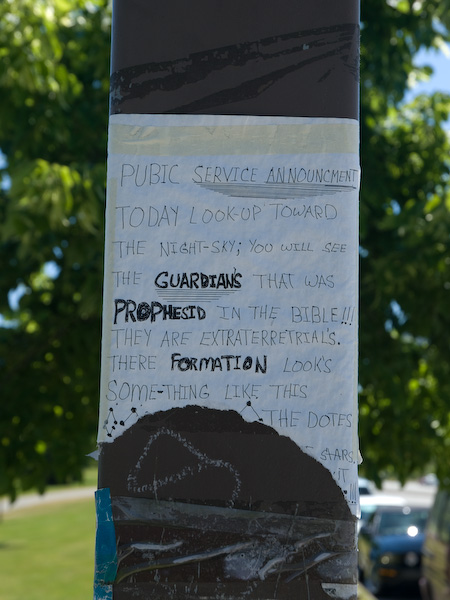 PUBIC SERVICE ANNOUNCMENT
TODAY LOOK-UP TOWARD
THE NIGHT-SKY; YOU WILL SEE
THE GUARDIAN'S THAT WAS
PROPHESID IN THE BIBLE!!!
THEY ARE EXTRATERRETRIAL'S.
THERE FORMATION LOOK'S
SOME-THING LIKE THIS
THE DOTES
STARS,
IT
!!!